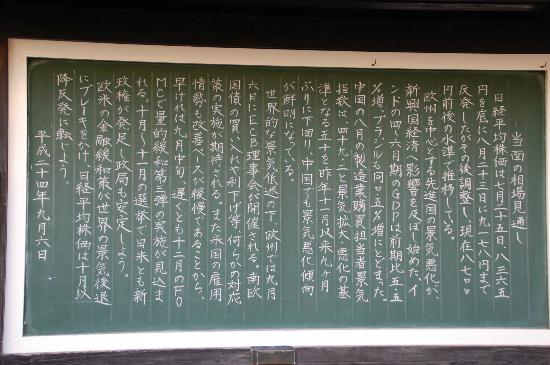 当面の相場見通し
日経平均株価は七月二十五日、八三六五
円を底に八月二十三日に九一七八円まで
反発したがその後調整し、現在八七〇〇
円前後の水準で推移している。
欧州を中心とする先進国の景気悪化が、
新興国経済へ影響を及ぼし始めた。イ
ンドの四〜六月期のGDPは前期比五・五
%増、ブラジルも同〇・五%増にとどまった。
中国の八月の製造業購買担当者景気
指数は、四十九・二と景気拡大・悪化の基
準となる五十を昨年十一月以来九ヶ月
ぶりに下回り、中国でも景気悪化傾向
が鮮明になっている。
世界的な景気低迷の下、欧州では九月
六日にECB理事会が開催される。南欧
国債の買い入れや利下げ等、何らかの対応
策の実施が期待される。また米国の雇用
情勢も改善ペースが緩慢であることから、
早ければ九月中旬、遅くとも十二月のFO
MCで量的緩和第三弾の実施が見込ま
れる。十月〜十一月の選挙で日米とも新
政権が発足し、政局も安定しよう。
欧米の金融緩和策が世界の景気後退
にブレーキをかけ、日経平均株価は十月以
降反発に転じよう。
平成二十四年九月六日